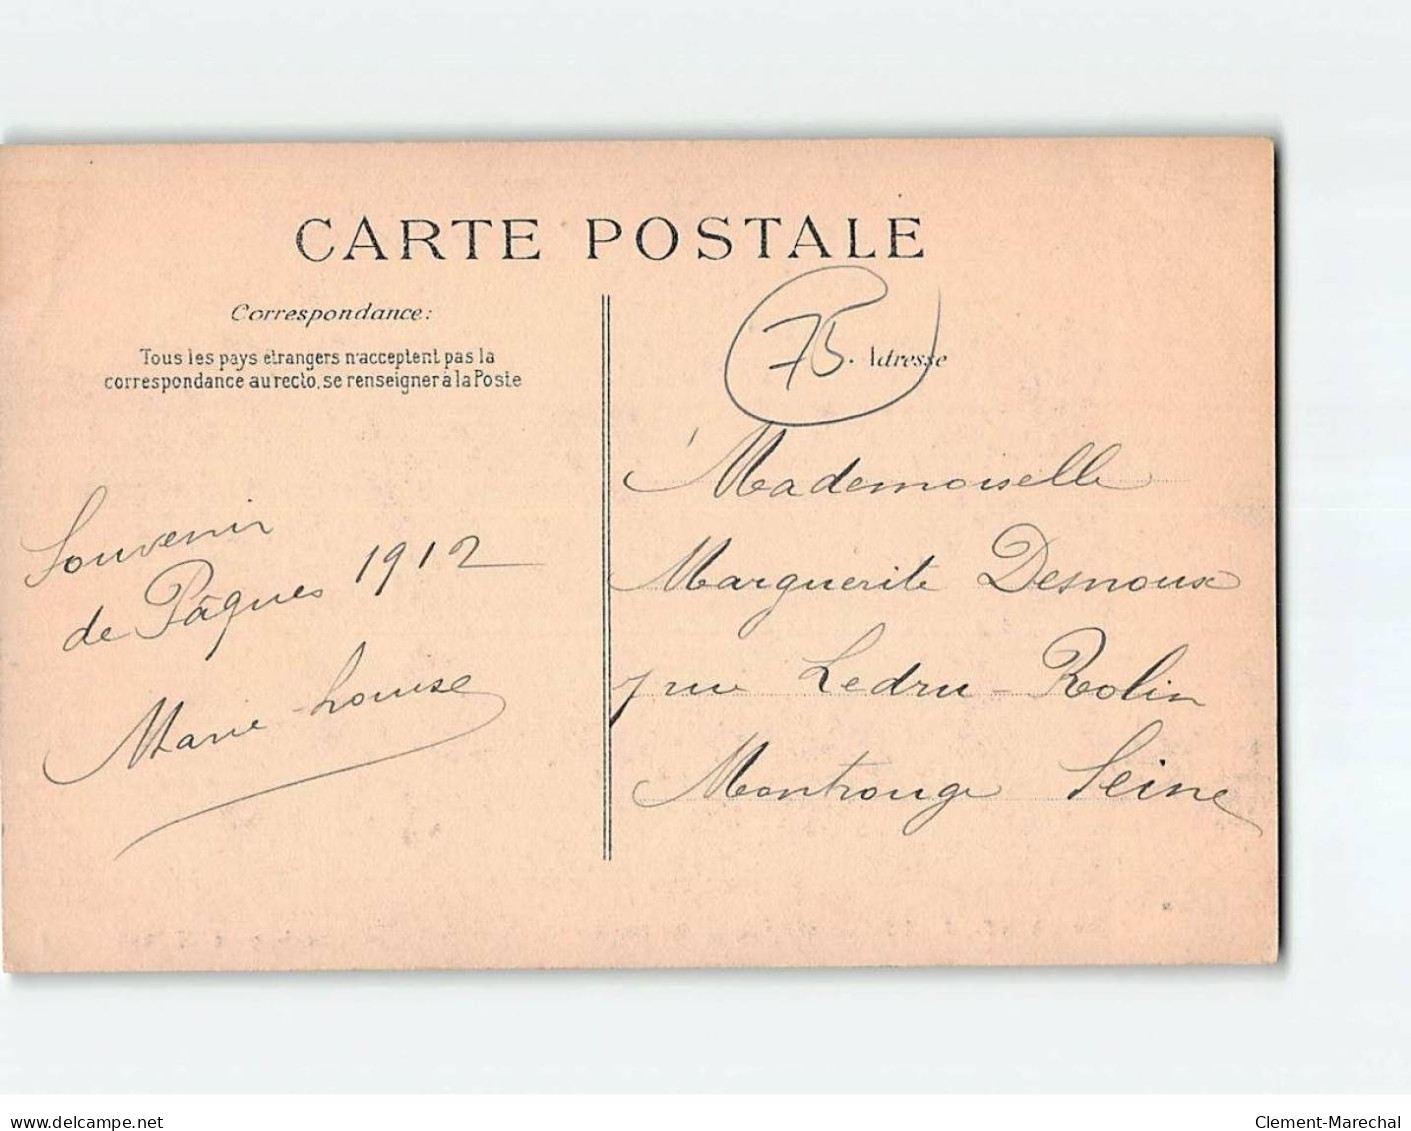 CARTE POSTALE
Correspondance:
Tous les pays étrangers n'acceptent pas la
correspondance au recto, se renseigner à la Poste
Souvenir
de Pâques 1912
Marie-Louise
75
Adresse
Mademoiselle
Marguerite Desnoux
7 rue Ledru-Rolin
Montrouge Seine
www.delcampe.net
Clement-Marechal